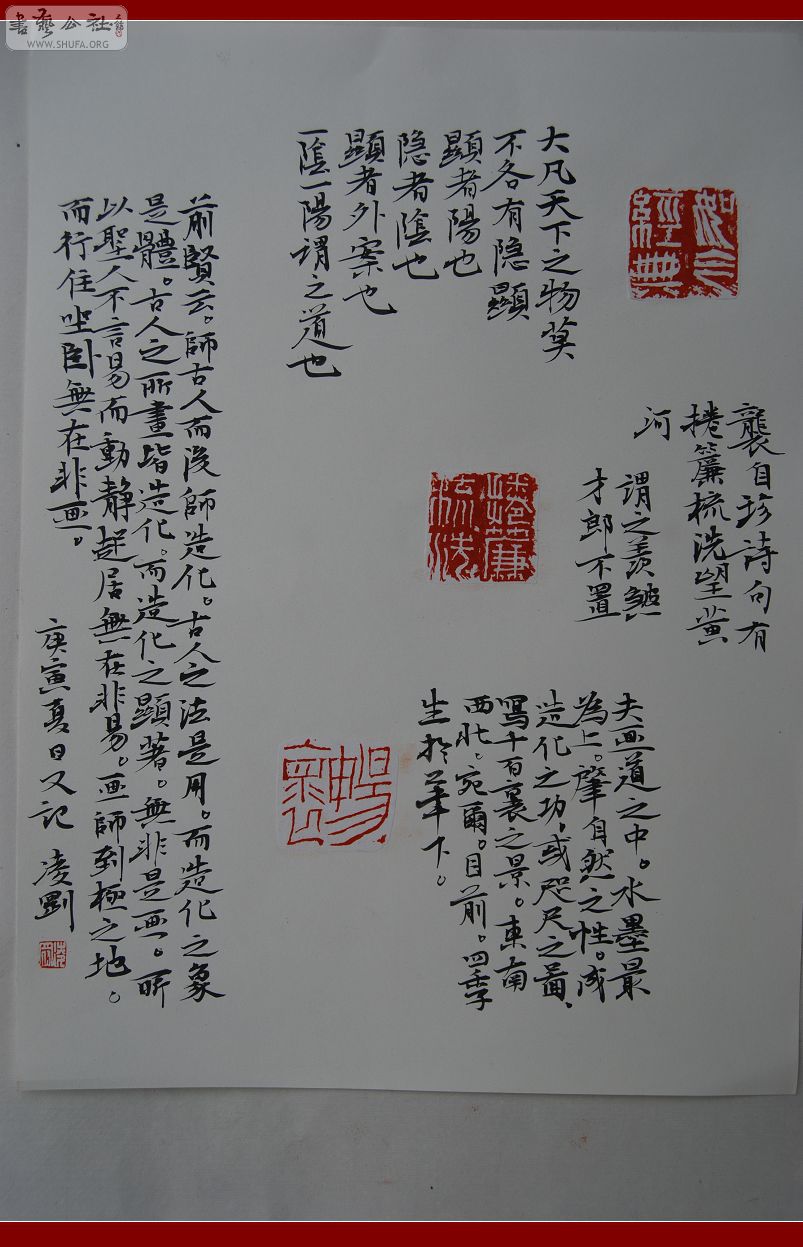 書藝公社
WWW.SHUFA.ORG
大凡天下之物莫
不各有隐顯
顯者陽也
隐者陰也
顯者外案也
一陰一陽謂之道也
龔自珍詩句有
捲簾梳洗望黃
河
謂之羨皴
才郎不置
捲簾
梳洗
夫画道之中。水墨最
為上。肇自然之性。成
造化之功，或咫尺之圖、
寫千百裏之景。東南
西北。宛爾。目前。四季
生於筆下。
前賢云。師古人而後師造化。古人之法是用。而造化之象
是體。古人之所畫皆造化。而造化之顯著。無非是画。所
以聖人不言易而動静起居無在非易。画師到極之地。
而行住坐卧無在非画。
庚寅夏日又記 凌劉